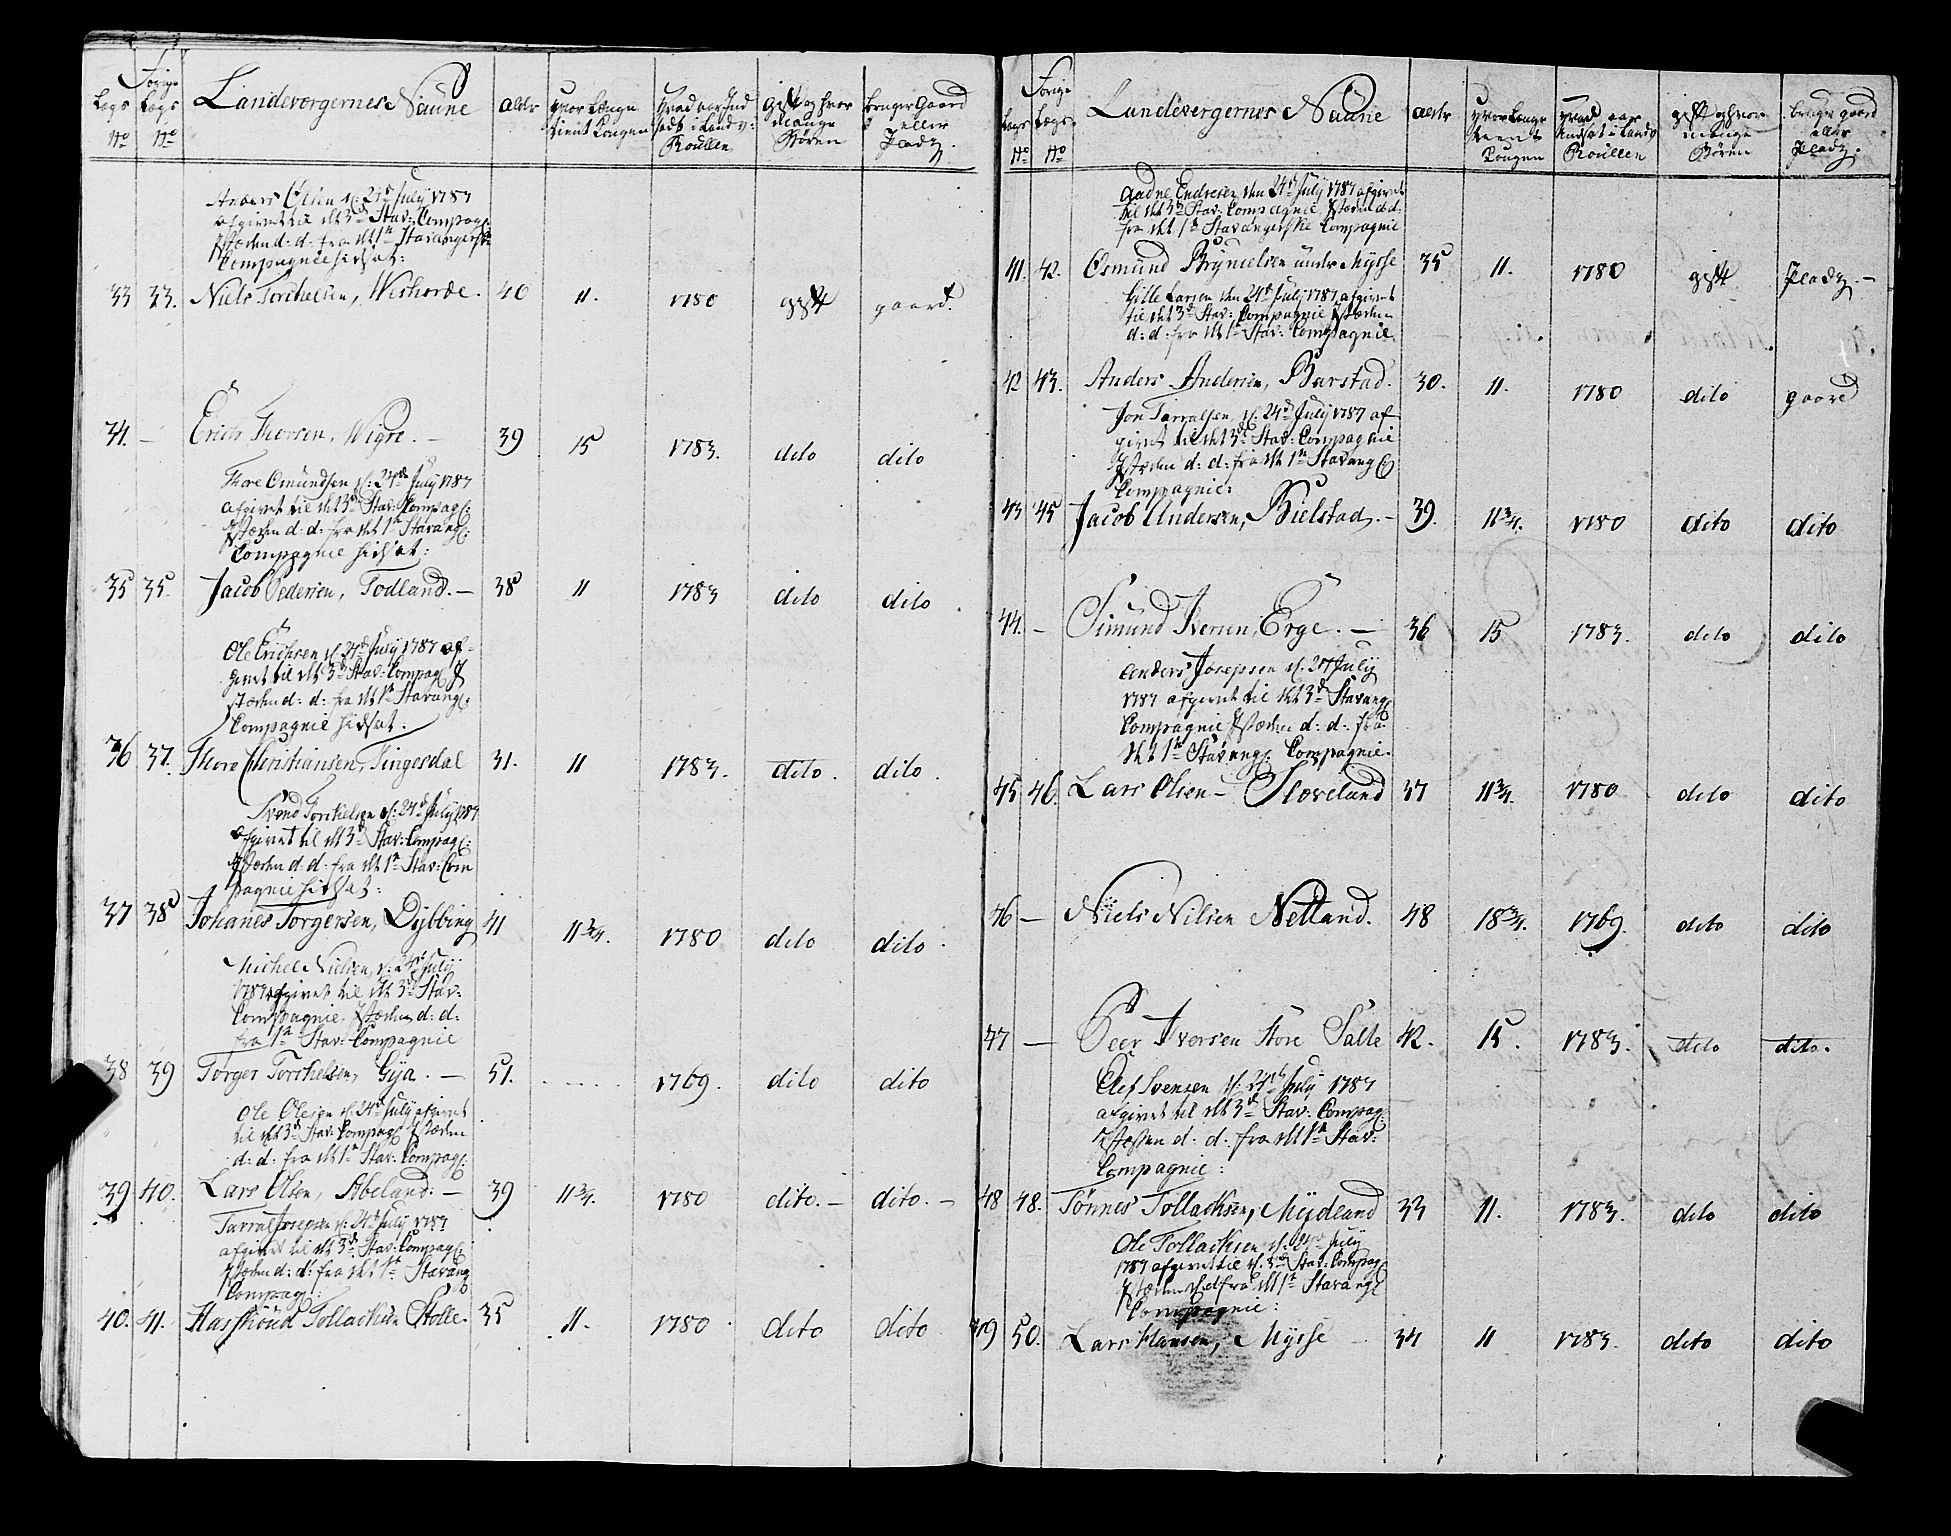 Lægs No Forige Lægs No Landevergernes Naune alder hvor Længe tient Kongen hvad aar Ind sadt i Land v: Roullen gift og hvor Mange Børen bruger Gaard eller Pladz.
Anders Olsen d: 24de July 1787
afgivet til dt 3de Stav: Compag:
I stæden d: d: fra dt 1te Stavangersk:
Compagnie hidsat:
33 33. Niels Torchelsen, 40 11. 1780 gift gaard.
34. — Erich Thorsen, Wigre. — 39 15 1783. dito dito
Thore Omundsen d: 24de July 1787
afgivet til dt 3de Stav: Compag:
I stæden d: d: fra dt 1te Stavang:
Compagnie hidsat:
35 35. Jacob Pedersen, Todland. — 38 11 1783 dito dito
Ole Erichsen d: 24de July 1787 af-
givet til dt 3de Stav: Compag: I
stæden d: d: fra dt 1te Stavang:
Compagnie hidsat:
36 37. Thore Christiansen, Tingesdal 31. 11 1783. dito. dito.
Svend Torchelsen d: 24de July 1787
afgivet til dt 3de Stav: Compag:
I stæden d: d: fra dt 1te Stav: Com
pagnie hidsat:
37 38 Johanes Torgersen, Dybbing 41 11 3/4. 1780 dito dito.
Michel Nielsen, d: 24de July
1787 afgivet til dt 3de Stav:
Compagnie. I stæden d: d:
fra 1te Stav: Compagnie
38 39 Torger Torchelsen, Gya. — 51. . . . . 1769. dito dito
Ole Olesen d: 24de July afgivet
til dt 3de Stav: Compag: I stæden
d: d: fra dt 1te Stav: Compag:
39 40. Lars Olsen, Abeland: — 39 11 3/4. 1780 dito. — dito. —
Tarral Josepsen d: 24de July 1787
afgivet til dt 3de Stav: Compag:
I stæden d: d: fra dt 1te Stavang
Compag:
40. 41. Tollachsen Stolle. 35 11. 1780 dito dito
Lægs No Forige Lægs No Landevergernes Naune alder hvor Længe tient Kongen hvad aar Indsat i Landv Roullen gift og hvor mange Børen bruger gaard eller Pladz.
Aadne Endresen den 24de July 1787 afgivet
til dt 3de Stav: Compagnie I stæden d: d:
fra dt 1te Stavangerske Compagnie
41. 42. Osmund Brynielsen under Mysse 35 11. 1780 gift Pladz. —
Gille Larsen den 24de July 1787 afgivet
til dt 3de Stav: Compagnie I stæden
d: d: fra dt 1te Stav: Compagnie
42 43. Anders Andersen, Barstad. 30. 11. 1780 dito gaard
Jon Tarralsen, d: 24de July 1787 af-
givet til dt 3de Stav: Compagnie
I stæden d: d: fra dt 1te Stavang:
Compagnie:
43 45 Jacob Andersen, Bielstad, — 39. 11 3/4. 1780 dito dito
44. — Simund Iversen, Erge. — 36 15 1783. dito dito
Anders Josepsen d. 24 July
1787 afgivet til dt 3de Stavang:
Compagnie I stæden d: d: fra
dt 1te Stavang: Compagnie.
45 46. Lars Olsen — Sloveland 37 11 3/4. 1780 dito dito
46 — Niels Nilsen Netland. 48 18 3/4. 1769. dito dito
47 — Peer Iversen Store Salte 42. 15. 1783. dito dito.
Olef Svensen d: 24de July 1787
afgivet til dt 3de Stav: Compag:
I stæden d: d: fra dt 1te Stav:
Compagnie:
48 48. Tønnes Tollachsen, Mydland 33 11. 1783. dito dito
Ole Tollachsen d: 24de July
1787 afgivet til d. 3de Stav: Compag:
I stæden d. d fra dt 1te Stavang:
Compagnie:
49 50. Lars Hansen, Mysse 34 11 1783. dito dito